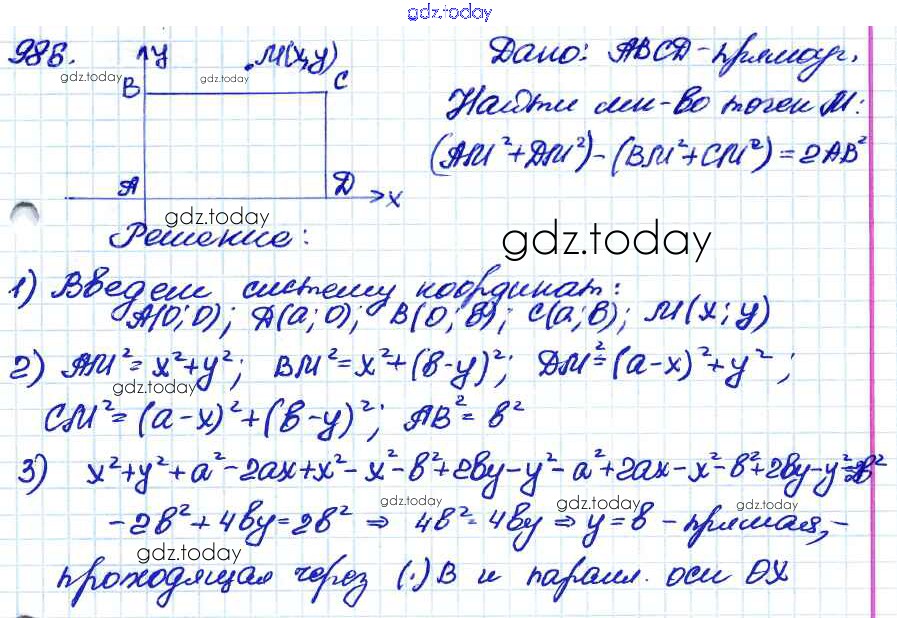 gdz.today
986.
y
M(x,y)
Дано: ABCD-прямоуг.
gdz.today
gdz.today
B
C
Найти мн-во точек M:
(AM²+DM²)-(BM²+CM²)=2AB²
A
D
x
gdz.today
Решение:
gdz.today
1) Введем систему координат:
A(0;0); D(a;0); B(0;B); C(a;B); M(x;y)
2) AM²=x²+y²; BM²=x²+(b-y)²; DM²=(a-x)²+y²;
gdz.today
CM²=(a-x)²+(b-y)²; AB²=b²
3) x²+y²+a²-2ax+x²-x²-b²+2by-y²-a²+2ax-x²-b²+2by-y²=2b²
gdz.today
gdz.today
-2b²+4by=2b² ⇒ 4b²=4by ⇒ y=b - прямая,-
gdz.today
проходящая через (·)B и паралл. оси OX